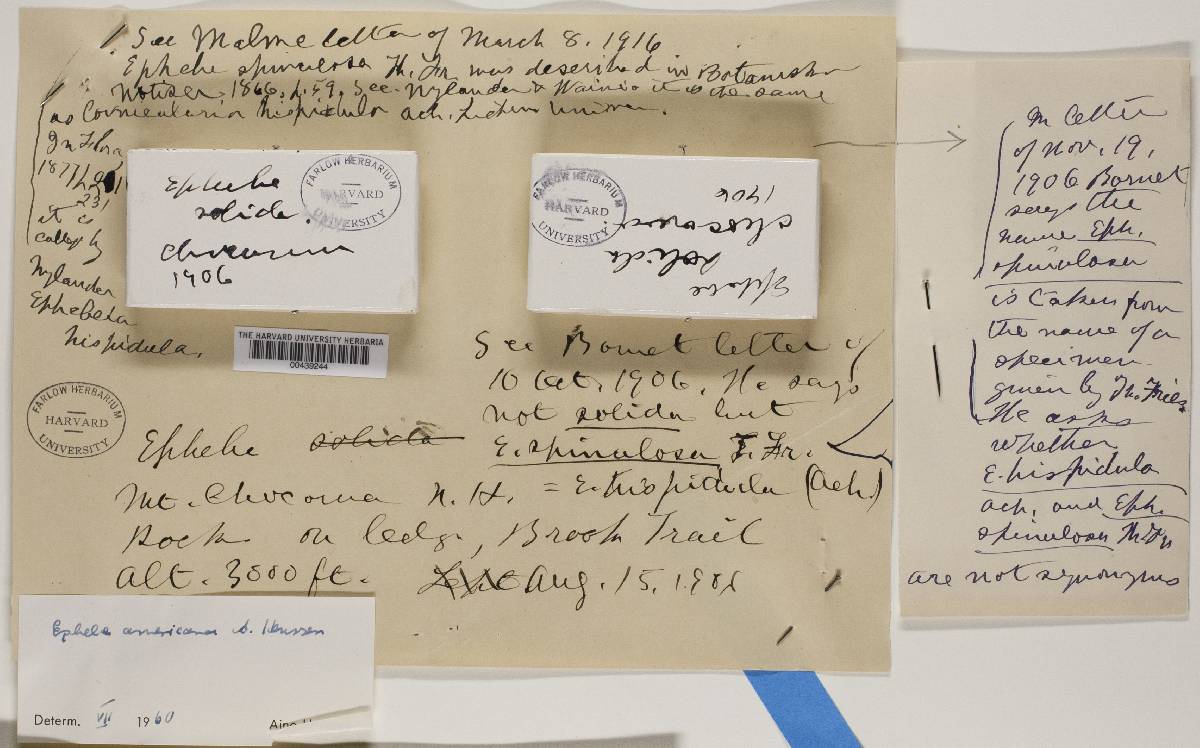 See Malme letter of March 8, 1916
Ephebe spinulosa Th. Fr. was described in Botaniska
Notiser 1866, p. 59. See Nylander & Wainio it is the same
as Cornicularia hispidula Ach. Lichen Univer.
In Flora
1877 p.
231
it is
called by
Nylander
Ephebeia
hispidula.
Ephebe
solida.
Chocorua
1906
FARLOW HERBARIUM
HARVARD
UNIVERSITY
Ephebe
solida
Chocorua
1906
FARLOW HERBARIUM
HARVARD
UNIVERSITY
THE HARVARD UNIVERSITY HERBARIA
00439244
FARLOW HERBARIUM
HARVARD
UNIVERSITY
See Bornet letter of
10 Oct. 1906. He says
not solida but
E. spinulosa T. Fr.
Ephebe solida
Mt. Chocorua N. H. = E. hispidula (Ach.)
Rock on ledge, Brook Trail
alt. 3000 ft. Aug. 15, 1906
In letter
of Nov. 19,
1906 Bornet
says the
name Eph.
spinulosa
is taken from
the name of a
specimen
given by Th. Fries
He asks
whether
E. hispidula
Ach. and Eph.
spinulosa Th. Fr
are not synonyms
Ephebe americana A. Henssen
Determ. VIII 1960